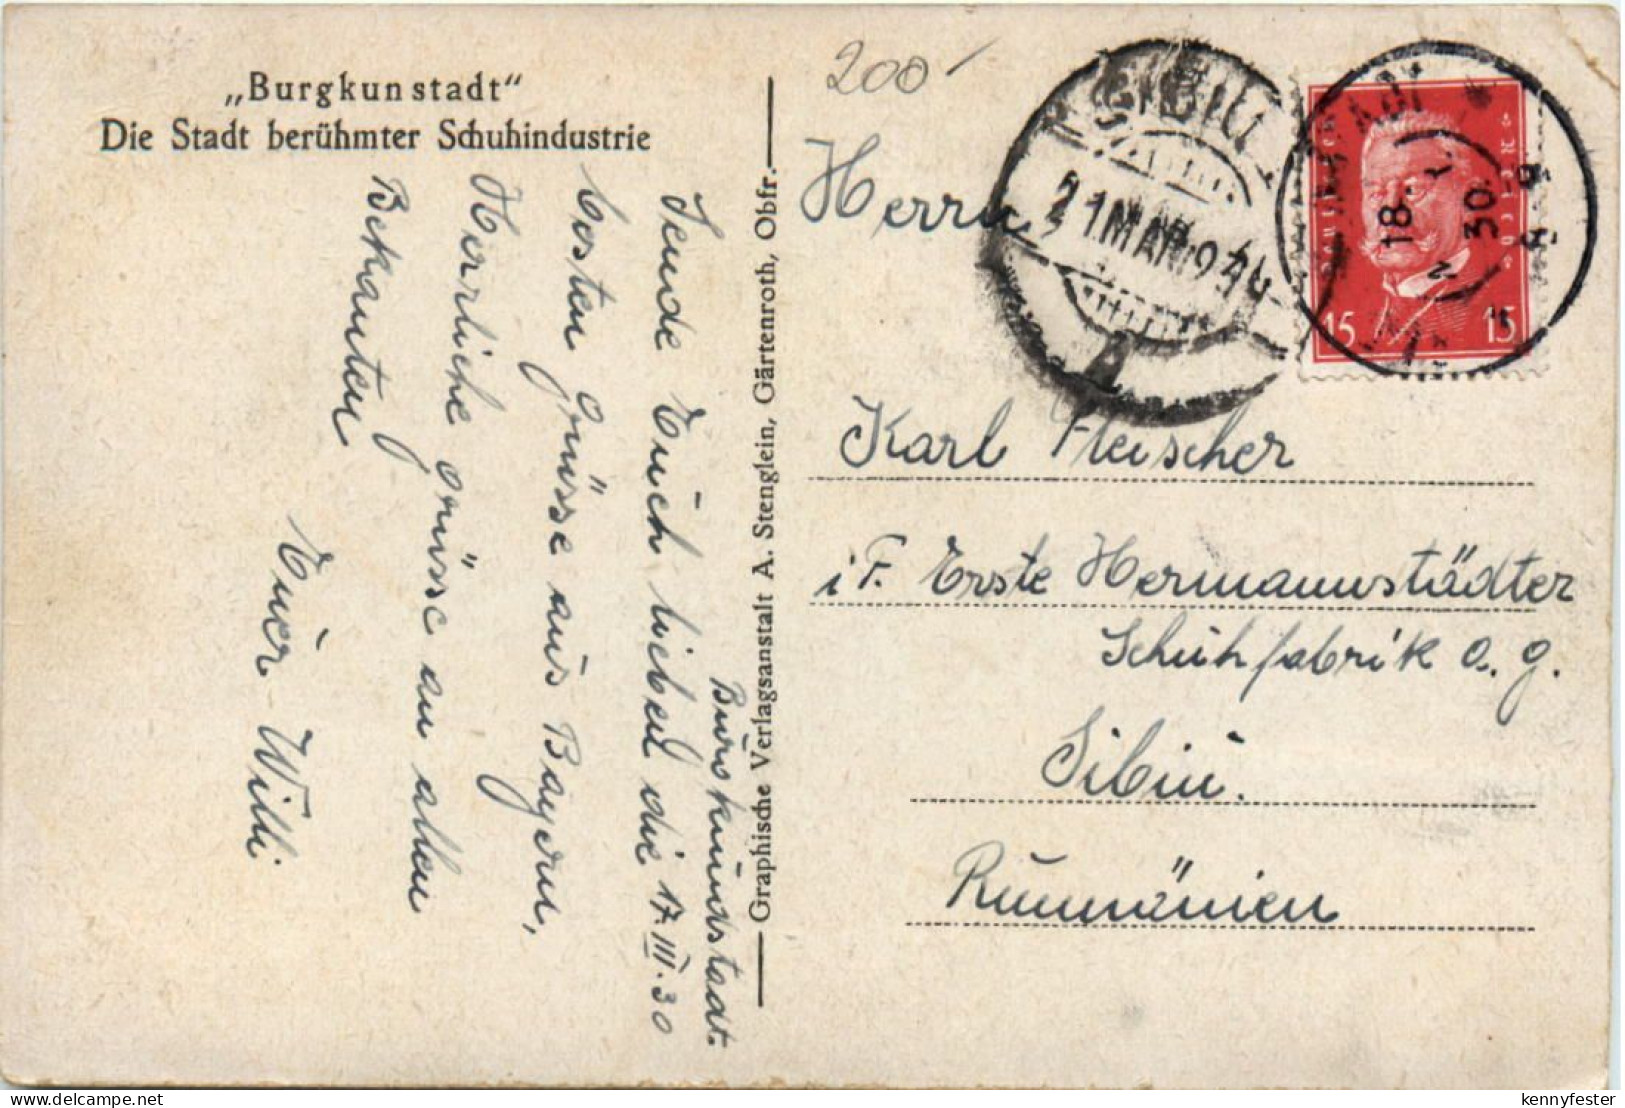 „Burgkunstadt“
Die Stadt berühmter Schuhindustrie
Burgkunstadt.
17.III.30
Sende Euch lieben die
besten grüsse aus Bayern,
Herrliche grüsse an allen
Bekannten
Euer Willi
Graphische Verlagsanstalt A. Stenglein, Gärtenroth, Obfr.
200
Herrn
Karl Fleischer
i F. Erste Hermannstädter
Schuhfabrik a. g.
Sibiu.
Rumänien
SIBIU
21 MAR 93
A
18.
30.
15 15
kennyfester